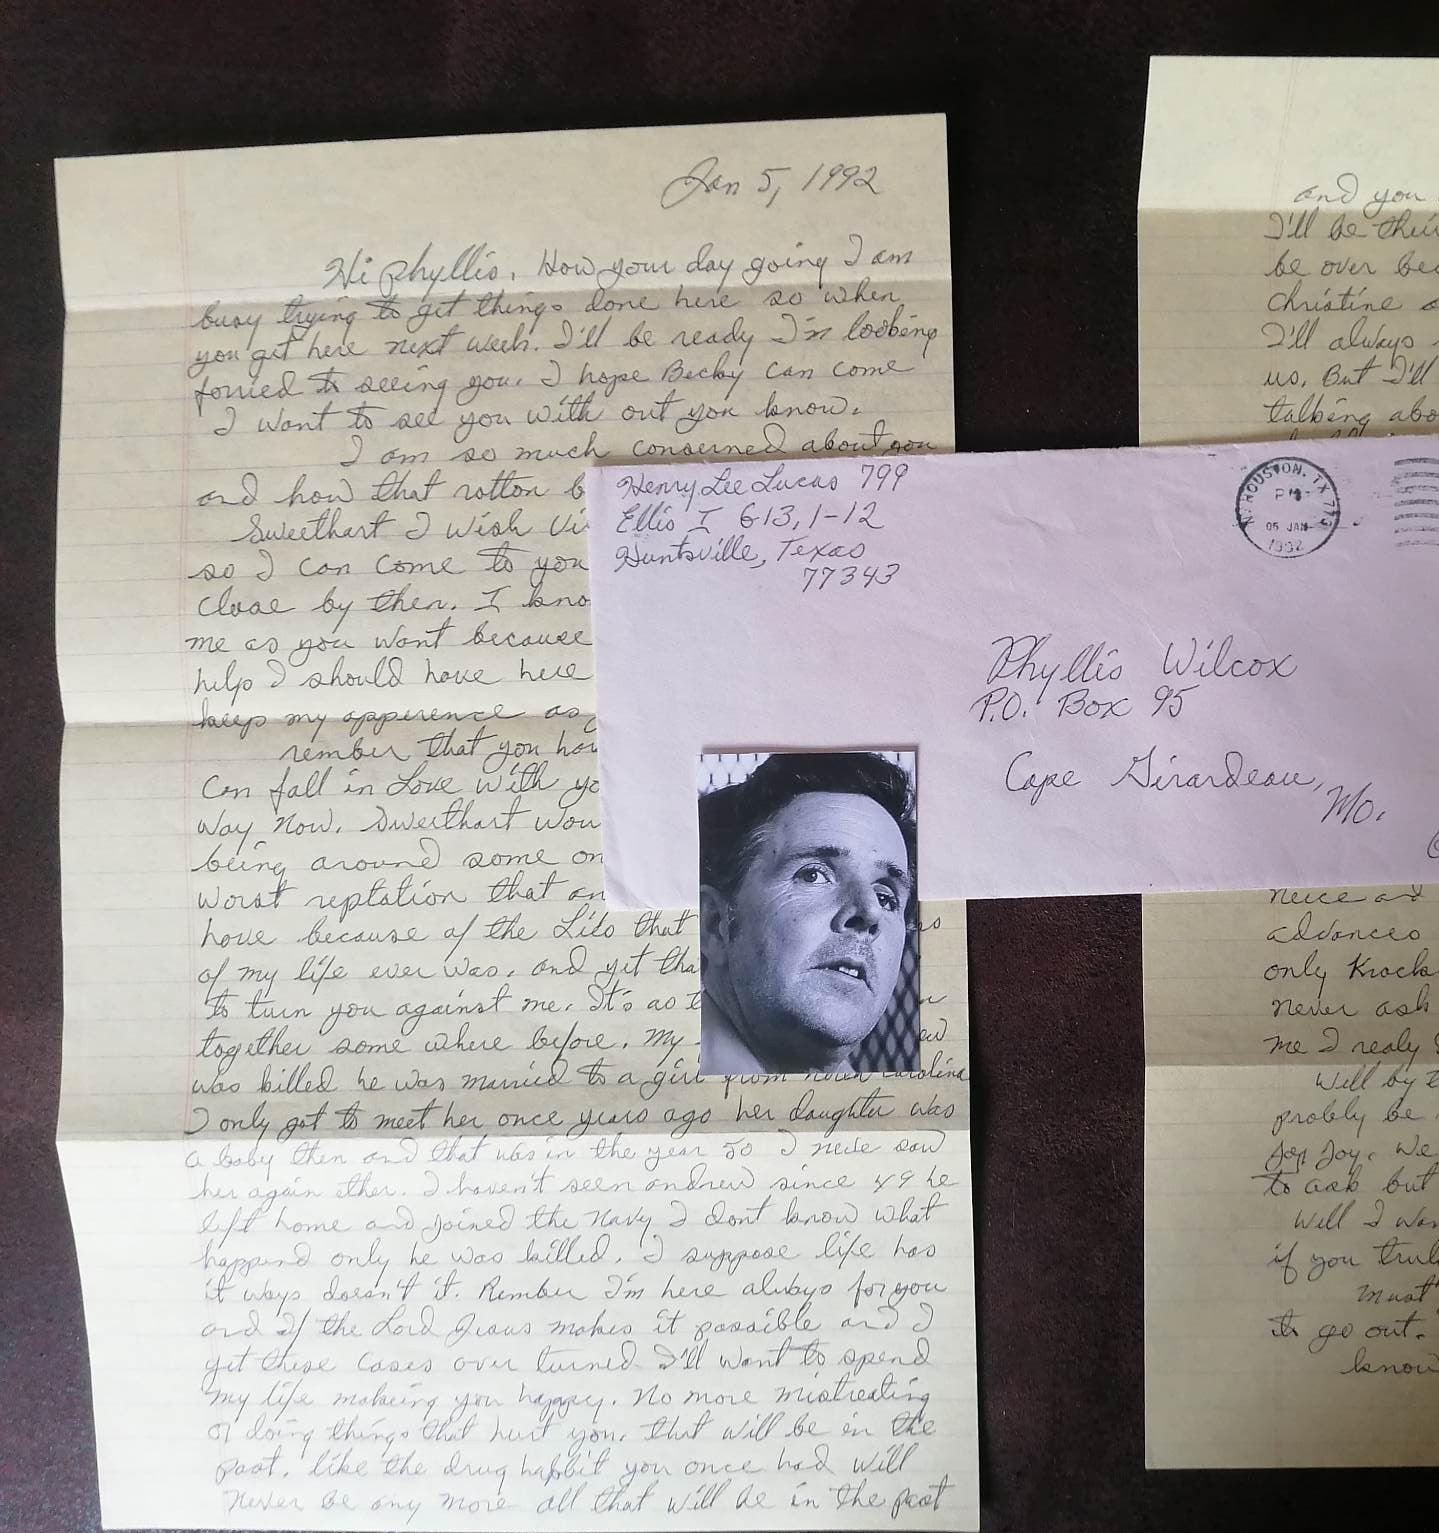 Jan 5, 1992
Hi Phyllis. How your day going I am
busy trying to get things done here so when
you get here next week. I'll be ready I'm looking
forried to seeing you. I hope Becky can come
I want to see you with out you know.
I am so much conserned about you
and how that rotton b
Sweethart I wish
so I can come to you
close by then. I kno
me as you want because
help I should have here
keep my apperence as
rember that you hav
can fall in Love with yo
way now. Sweethart wou
being around some on
worst reptation that an
have because of the Lies that
of my life ever was. and yet tha
to turn you against me. It's as
together some where before. My
was killed he was married to a girl from North Carolina
I only got to meet her once years ago her daughter was
a baby then and that was in the year 50 I never saw
her again ether. I haven't seen andrew since 49 he
left home and joined the Navy I dont know what
happend only he was killed. I suppose life has
it ways doesn't it. Rember I'm here always for you
and if the Lord Jesus makes it possible and I
get these cases over turned I'll want to spend
my life makeing you happy. No more mistreating
or doing things that hurt you. that will be in the
past. like the drug habbit you once had will
never be any more all that will be in the past
Henry Lee Lucas 799
Ellis I G13, 1-12
Huntsville, Texas
77343
N. HOUSTON, TX 773
PM
05 JAN
1992
Phyllis Wilcox
P.O. Box 95
Cape Girardeau,
Mo.
and you
I'll be their
be over bec
christine
I'll always
us. But I'll
talking abo
neice and
advances
only Knock
never ask
me I realy
Will by t
probly be
for Joy. We
to ask but
Will I wan
if you trul
Must
to go out.
know